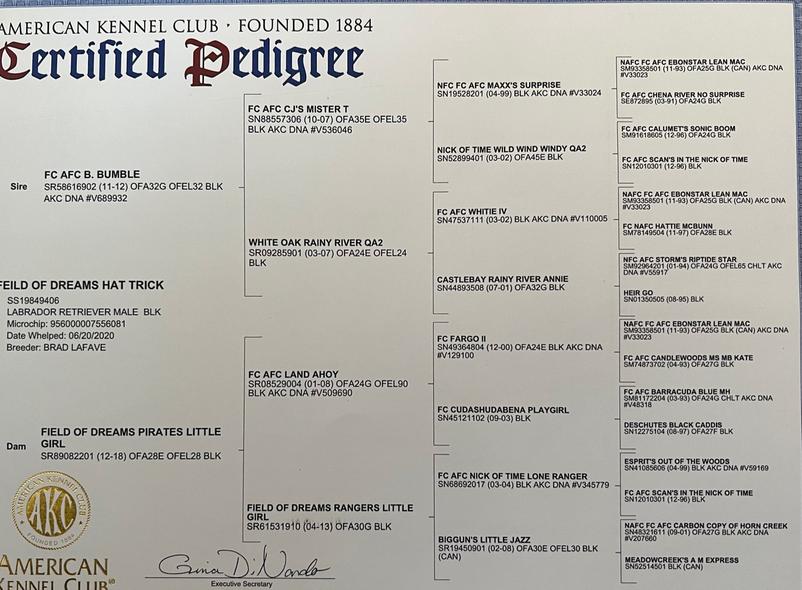 AMERICAN KENNEL CLUB · FOUNDED 1884
Certified Pedigree
Sire
FC AFC B. BUMBLE
SR58616902 (11-12) OFA32G OFEL32 BLK
AKC DNA #V689932
FEILD OF DREAMS HAT TRICK
SS19849406
LABRADOR RETRIEVER MALE BLK
Microchip: 956000007556081
Date Whelped: 06/20/2020
Breeder: BRAD LAFAVE
Dam
FIELD OF DREAMS PIRATES LITTLE
GIRL
SR89082201 (12-18) OFA28E OFEL28 BLK
FC AFC CJ'S MISTER T
SN88557306 (10-07) OFA35E OFEL35
BLK AKC DNA #V536046
WHITE OAK RAINY RIVER QA2
SR09285901 (03-07) OFA24E OFEL24
BLK
FC AFC LAND AHOY
SR08529004 (01-08) OFA24G OFEL90
BLK AKC DNA #V509690
FIELD OF DREAMS RANGERS LITTLE
GIRL
SR61531910 (04-13) OFA30G BLK
NFC FC AFC MAXX'S SURPRISE
SN19528201 (04-99) BLK AKC DNA #V33024
NICK OF TIME WILD WIND WINDY QA2
SN52899401 (03-02) OFA45E BLK
FC AFC WHITIE IV
SN47537111 (03-02) BLK AKC DNA #V110005
CASTLEBAY RAINY RIVER ANNIE
SN44893508 (07-01) OFA32G BLK
FC FARGO II
SN49364804 (12-00) OFA24E BLK AKC DNA
#V129100
FC CUDASHUDABENA PLAYGIRL
SN45121102 (09-03) BLK
FC AFC NICK OF TIME LONE RANGER
SN68692017 (03-04) BLK AKC DNA #V345779
BIGGUN'S LITTLE JAZZ
SR19450901 (02-08) OFA30E OFEL30 BLK
(CAN)
NAFC FC AFC EBONSTAR LEAN MAC
SM93358501 (11-93) OFA25G BLK (CAN) AKC DNA
#V33023
FC AFC CHENA RIVER NO SURPRISE
SE872895 (03-91) OFA24G BLK
FC AFC CALUMET'S SONIC BOOM
SM91618605 (12-96) OFA24G BLK
FC AFC SCAN'S IN THE NICK OF TIME
SN12010301 (12-96) BLK
NAFC FC AFC EBONSTAR LEAN MAC
SM93358501 (11-93) OFA25G BLK (CAN) AKC DNA
#V33023
FC NAFC HATTIE MCBUNN
SM78149504 (11-97) OFA28E BLK
NFC AFC STORM'S RIPTIDE STAR
SM92964201 (01-94) OFA24G OFEL65 CHLT AKC
DNA #V55917
HEIR GO
SN01350505 (08-95) BLK
NAFC FC AFC EBONSTAR LEAN MAC
SM93358501 (11-93) OFA25G BLK (CAN) AKC DNA
#V33023
FC AFC CANDLEWOODS MS MB KATE
SM74873702 (04-93) OFA27G BLK
FC AFC BARRACUDA BLUE MH
SM81172204 (03-93) OFA24G CHLT AKC DNA
#V48318
DESCHUTES BLACK CADDIS
SN12275104 (08-97) OFA27F BLK
ESPRIT'S OUT OF THE WOODS
SN41085606 (04-99) BLK AKC DNA #V59169
FC AFC SCAN'S IN THE NICK OF TIME
SN12010301 (12-96) BLK
NAFC FC AFC CARBON COPY OF HORN CREEK
SN48321611 (09-01) OFA27G BLK AKC DNA
#V207660
MEADOWCREEK'S A M EXPRESS
SN52514501 BLK (CAN)
AMERICAN KENNEL CLUB
AKC
FOUNDED 1884
AMERICAN
KENNEL CLUB®
Gina DiNardo
Executive Secretary